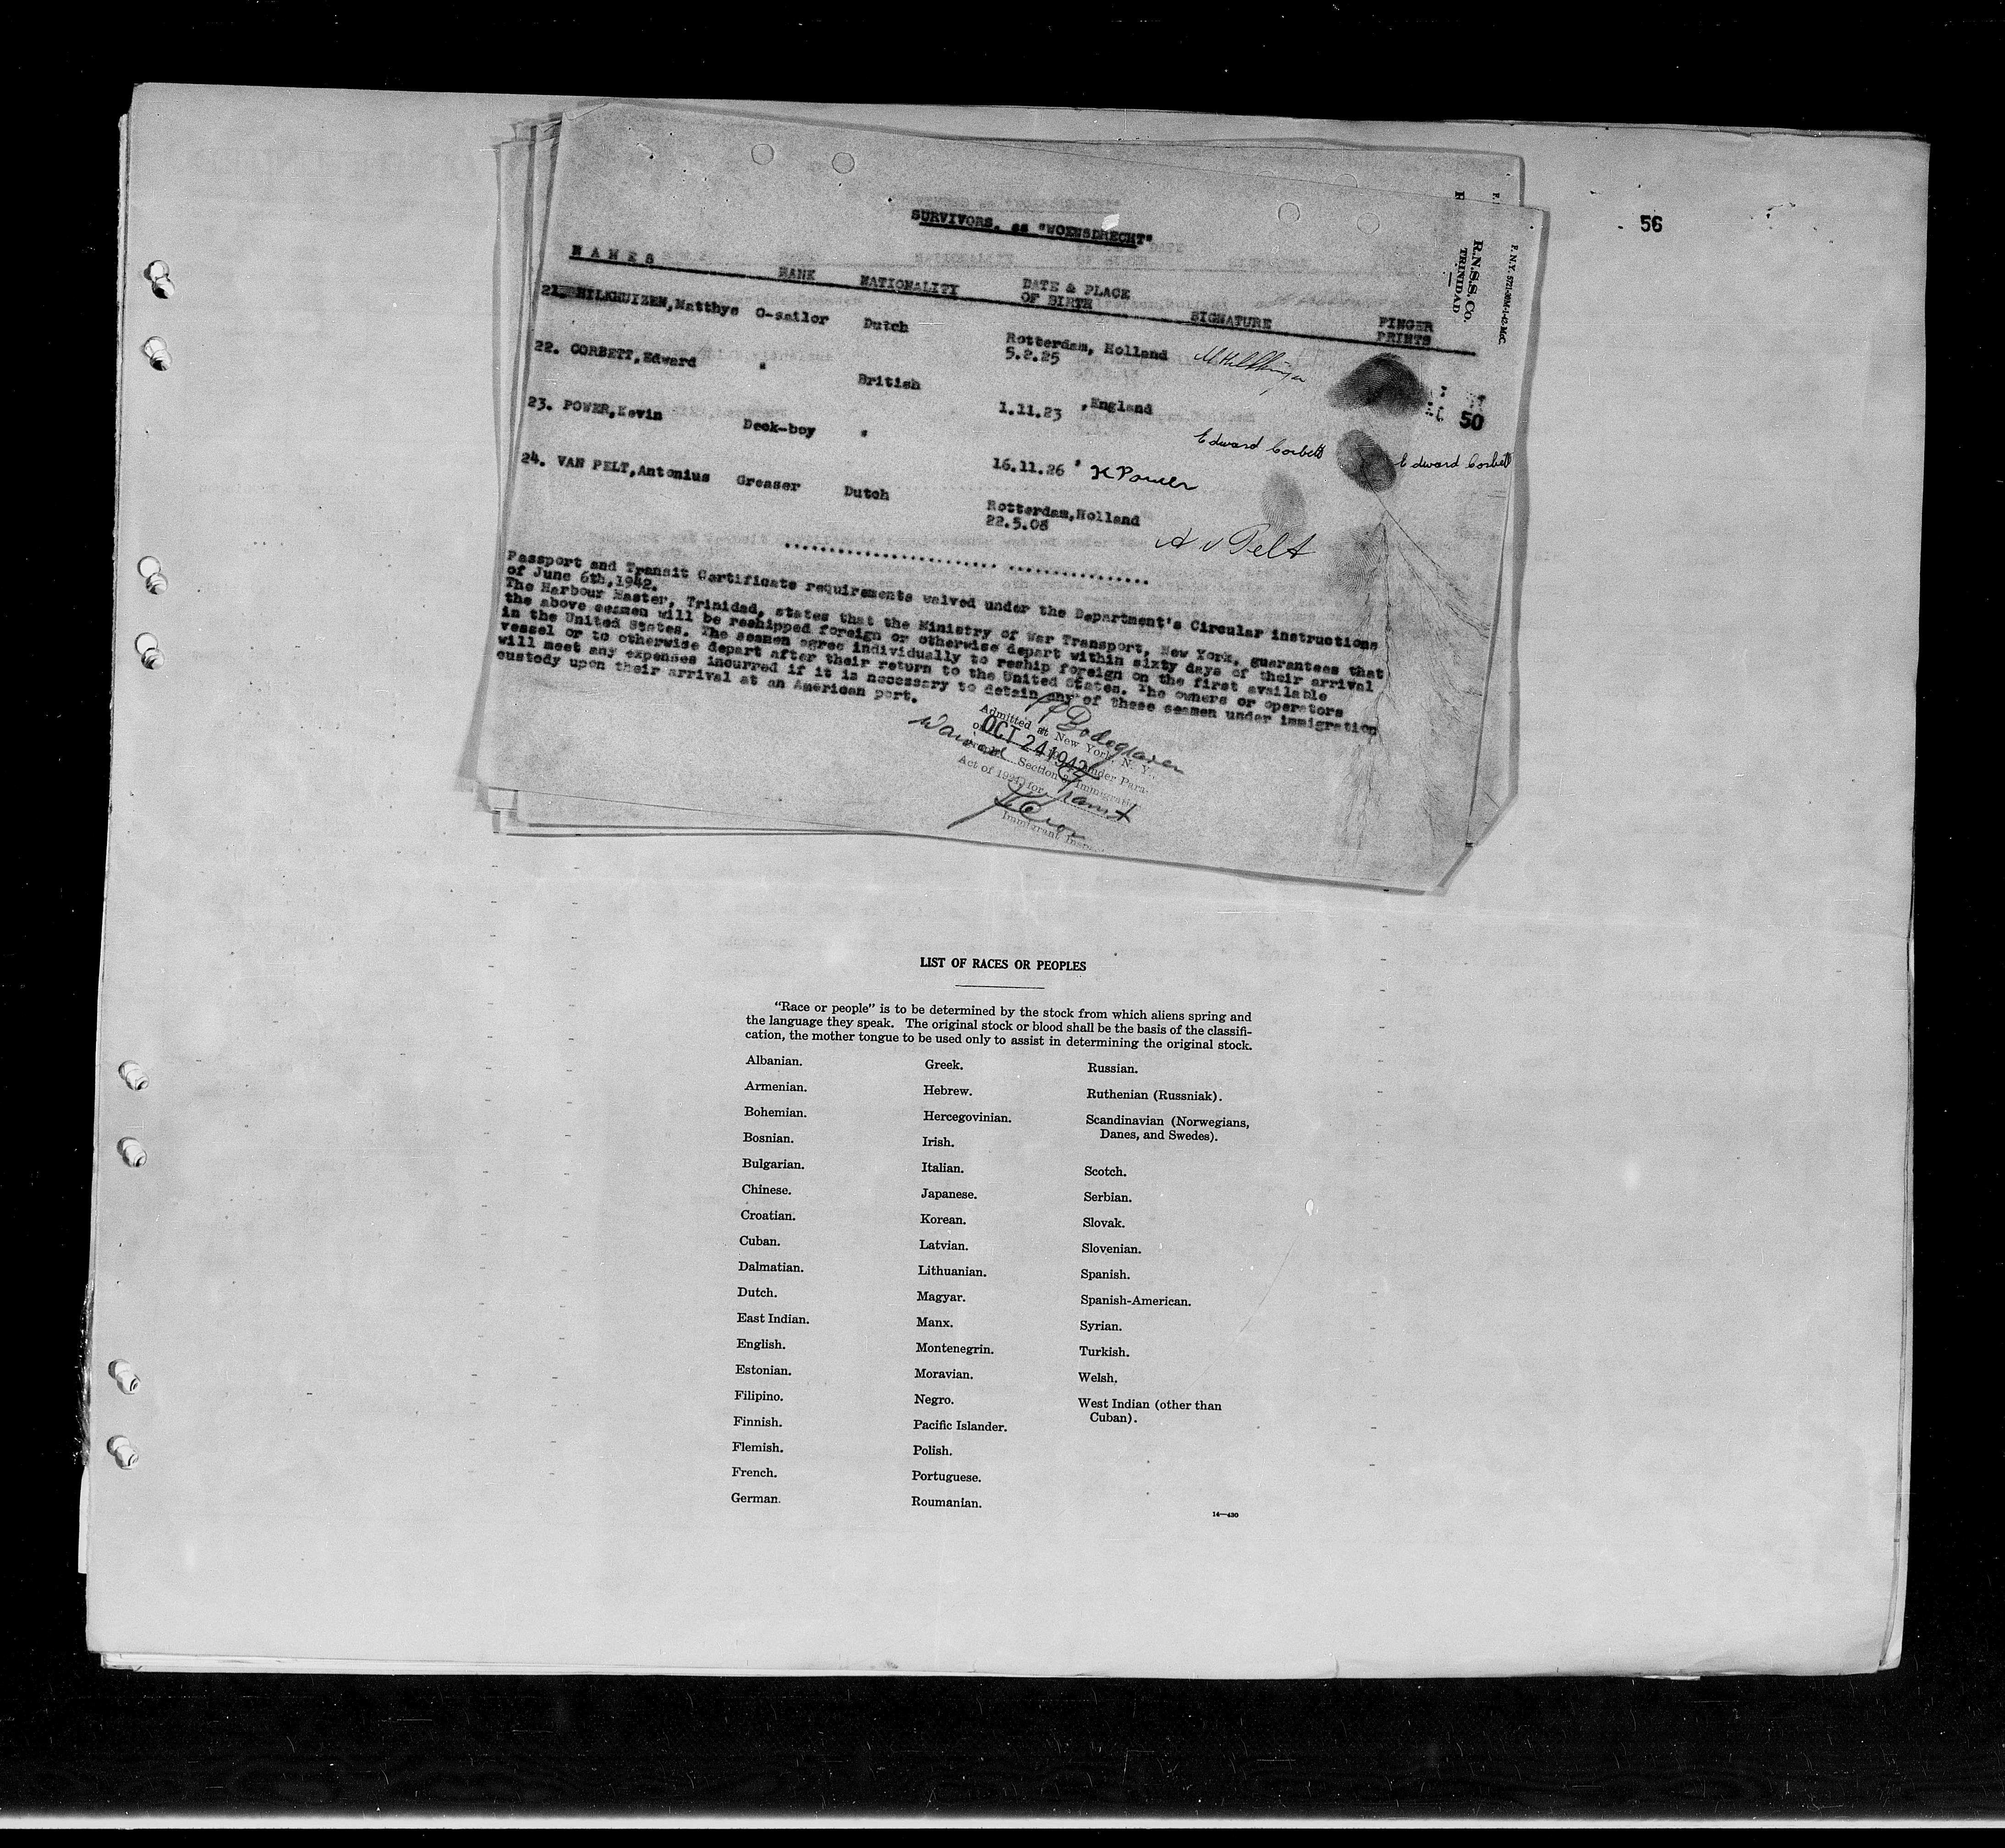 56
F.N.Y. 5721-30M-1-42-McC.
R.N.S.S. Co.
TRINIDAD
SURVIVORS. ss "WOENSDRECHT"
N A M E S RANK NATIONALITY DATE & PLACE OF BIRTH SIGNATURE FINGER PRINTS
21. HILKHUIZEN,Matthys O-sailor Dutch Rotterdam, Holland
5.2.25
50
22. CORBETT,Edward " British ,England
1.11.23 Edward Corbett Edward Corbett
23. POWER,Kevin Deck-boy " 16.11.26 " K Power
24. VAN PELT,Antonius Greaser Dutch Rotterdam,Holland
22.5.08 A v Pelt
Passport and Transit Certificate requirements waived under the Department's Circular instructions
of June 6th,1942.
The Harbour Master, Trinidad, states that the Ministry of War Transport, New York, guarantees that
the above seamen will be reshipped foreign or otherwise depart within sixty days of their arrival
in the United States. The seamen agree individually to reship foreign on the first available
vessel or to otherwise depart after their return to the United States. The owners or operators
will meet any expenses incurred if it is necessary to detain any of these seamen under immigration
custody upon their arrival at an American port.
Admitted at New York, N. Y.,
on OCT 24 1942 under Para-
Section 3 Immigration
Act of 1924, for
Immigrant Inspector
LIST OF RACES OR PEOPLES
"Race or people" is to be determined by the stock from which aliens spring and
the language they speak. The original stock or blood shall be the basis of the classifi-
cation, the mother tongue to be used only to assist in determining the original stock.
Albanian.
Armenian.
Bohemian.
Bosnian.
Bulgarian.
Chinese.
Croatian.
Cuban.
Dalmatian.
Dutch.
East Indian.
English.
Estonian.
Filipino.
Finnish.
Flemish.
French.
German.
Greek.
Hebrew.
Hercegovinian.
Irish.
Italian.
Japanese.
Korean.
Latvian.
Lithuanian.
Magyar.
Manx.
Montenegrin.
Moravian.
Negro.
Pacific Islander.
Polish.
Portuguese.
Roumanian.
Russian.
Ruthenian (Russniak).
Scandinavian (Norwegians,
Danes, and Swedes).
Scotch.
Serbian.
Slovak.
Slovenian.
Spanish.
Spanish-American.
Syrian.
Turkish.
Welsh.
West Indian (other than
Cuban).
14—430